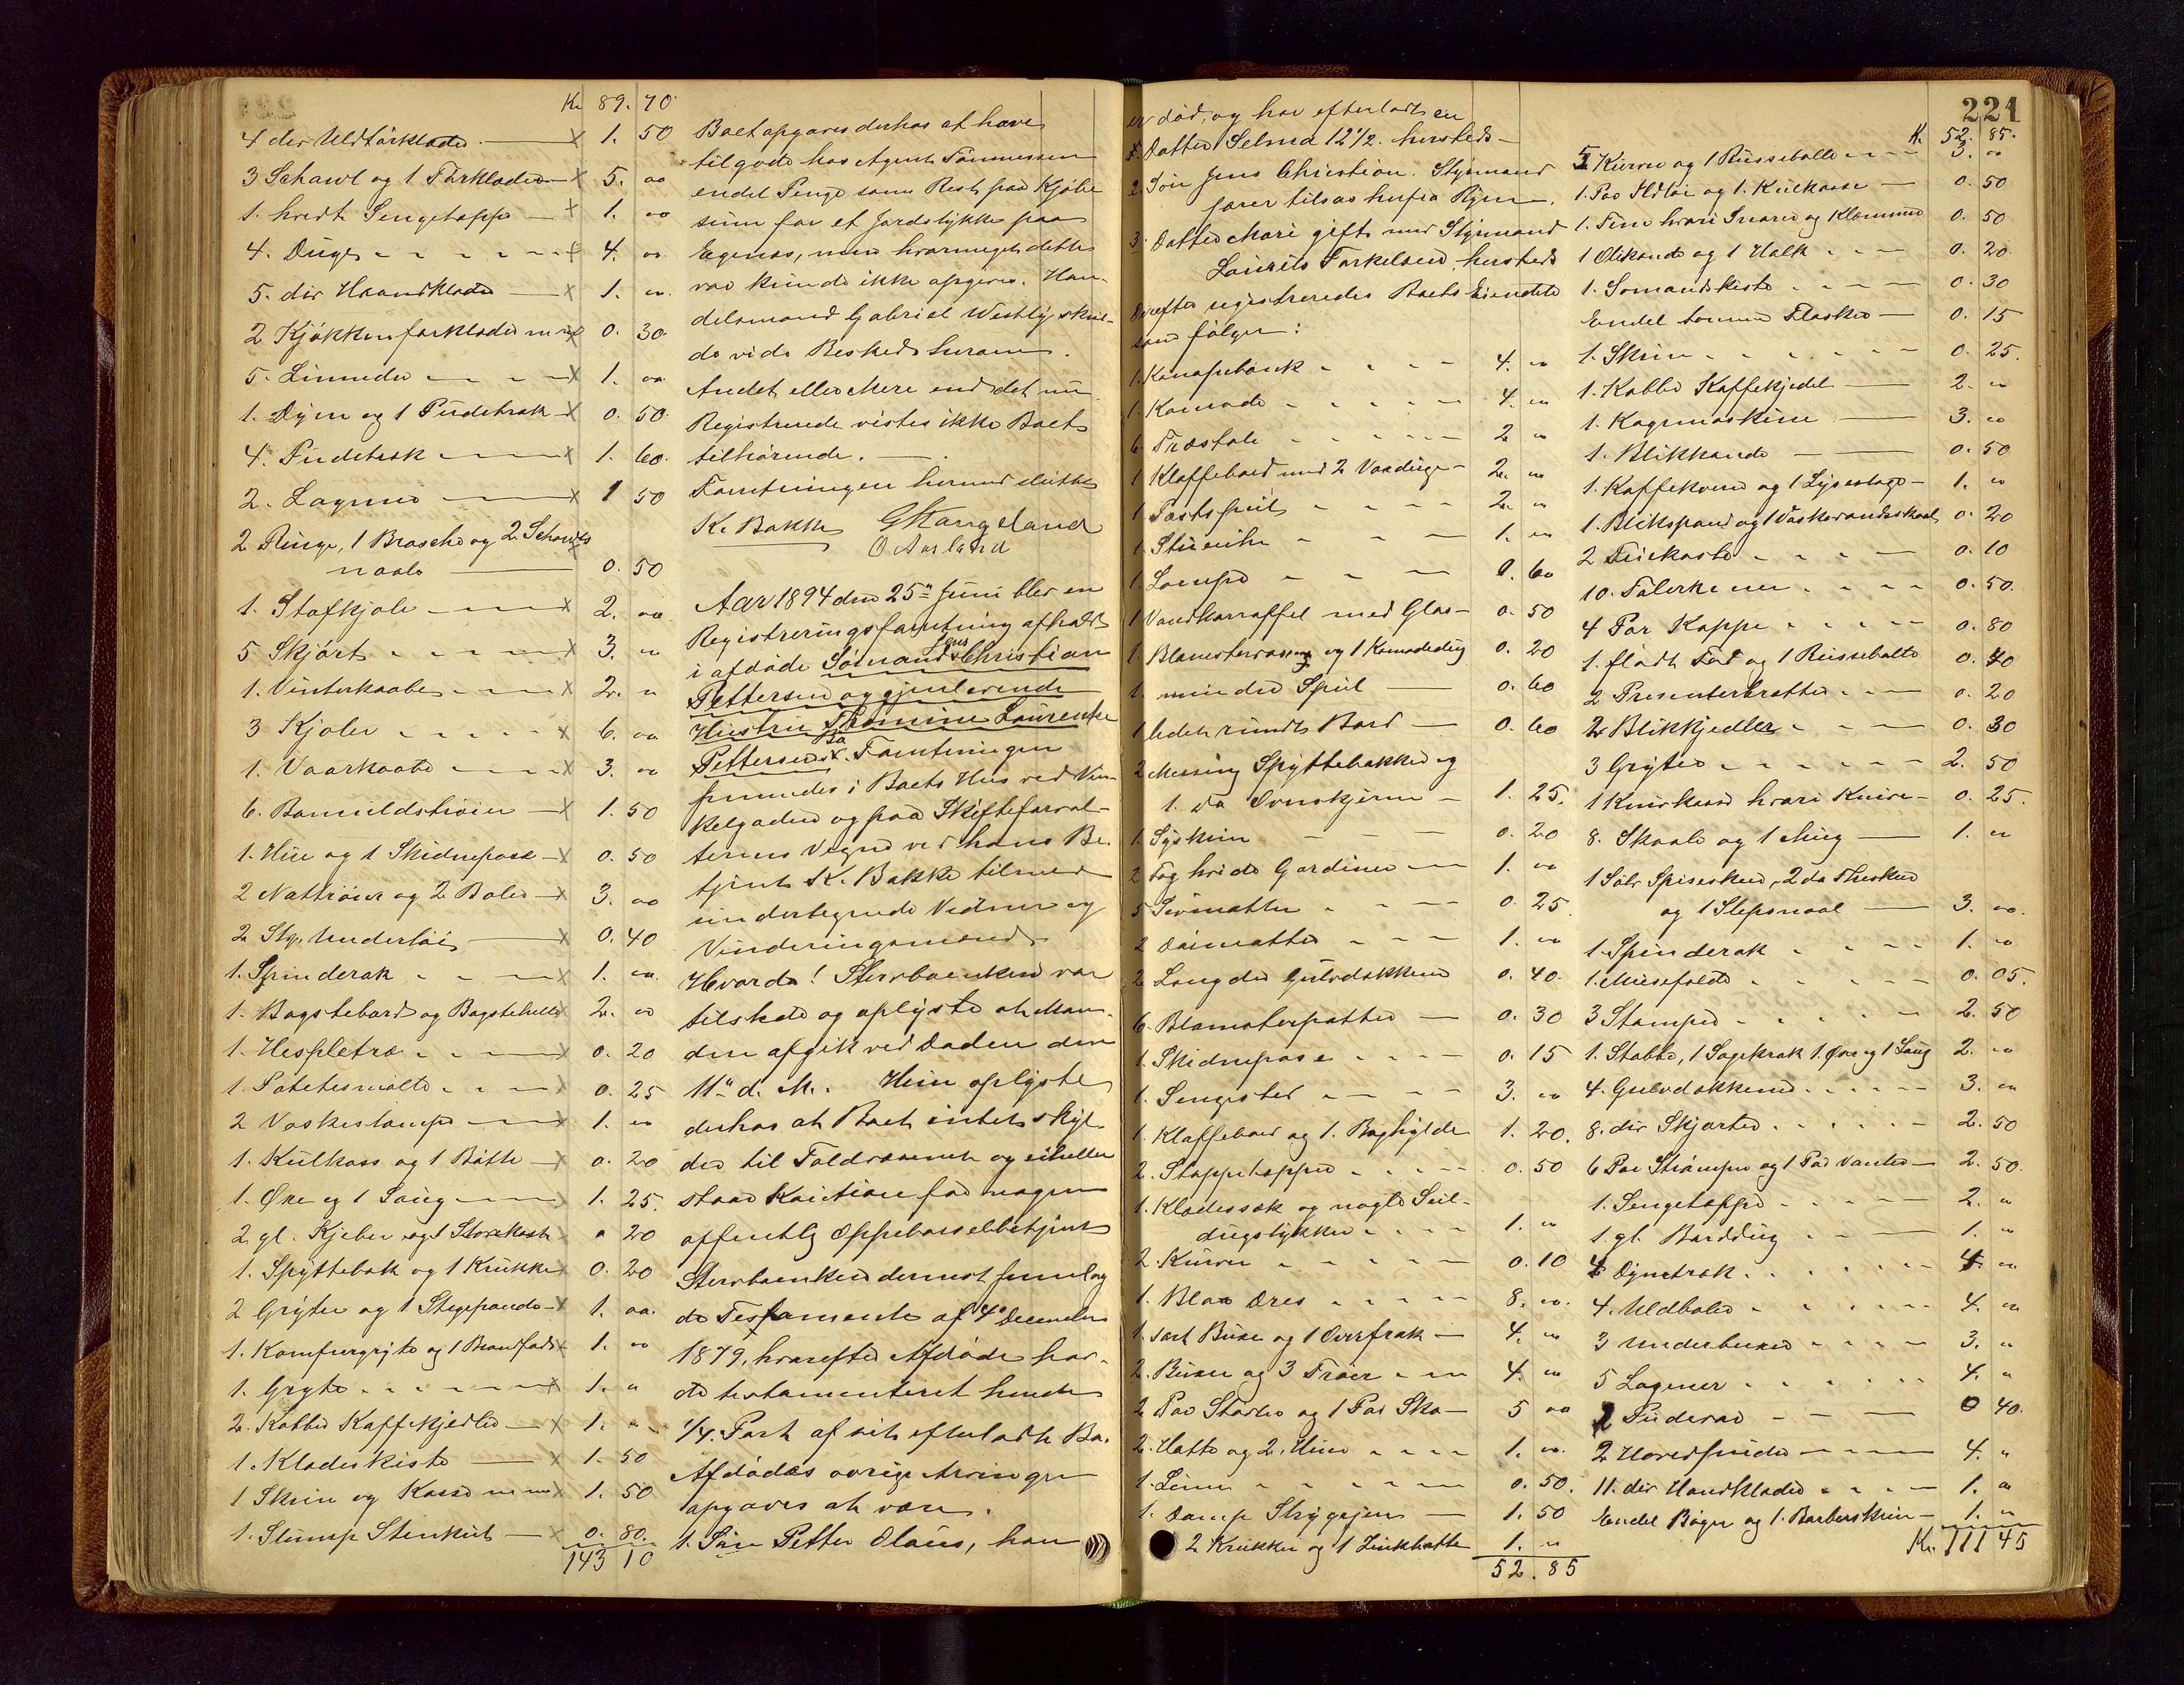 Kr. 89. 70
4 div Uldtørklæder x 1. 50
3 Schawl og 1 Tørklæde x 5. oo
1. hvidt Sengetæppe x 1. oo
4. Duge x 4. oo
5. div Haandklæder x 1. oo
2 Kjøkkenforklæder m m x 0. 30
5. Linneder x 1. oo
1. Dyne og 1 Pudetræk x 0. 50
4. Pudetræk x 1. 60.
2. Lagener x 1 50
2 Ringe, 1 Brosche og 2 Schawls
naale 0. 50
1. Stofkjole x 2. oo
5 Skjørt x 3. oo
1. Vinterkaabe x 2. oo
3 Kjoler x 6. oo
1. Vaarkaabe x 3. oo
6. Bomuldstrøier x 1. 50
1. Hue og 1 Skidenpose x 0. 50
2 Nattrøier og 2 Boler x 3. oo
2 Stp. Undertøi x 0. 40
1. Spinderok x 1. oo
1. Bagstebord og Bagstehelle x 2. oo
1. Hespletræ x 0. 20
1. Potetesmolte x 0. 25
2 Vaskestampe x 1. oo
1. Kulkass og 1 Bøtte x 0. 20
1. Øxe og 1 Saug x 1. 25.
2 gl. Kjeler og 1 Stovekost x o 20
1. Spyttebak og 1 Krukke x 0. 20
2 Gryter og 1 Stegepande x 1. oo.
1. Komfurgryte og 1 Brandfad x 1. oo
1. Gryte x 1. "
2. Kobber Kaffekjedler x 1. "
1. Klædeskiste x 1. 50
1 Skrin og Kasse m m x 1. 50
1. Slump Stenkul x 0. 80.
143 10
Boet opgaves derhos at have
tilgode hos Agent Tønnessen
endel Penge som Rest paa Kjøbe
sum for et Jordstykke paa
Egenes, men hvormeget dette
var kunde ikke opgives. Han-
delsmand Gabriel Westly skul-
de vide Besked herom.
Andet eller Mere end det nu
Registrerede vistes ikke Boet
tilhørende.
Forretningen hermed sluttet
K. Bakke GStangeland
O Aarland
Aar 1894 den 25de Juni blev en
Registreringsforretning afholdt
i afdøde Sømand Jens Christian
Pettersen og gjenlevende
Hustru Thomine Laurentse
Pettersens Bo. Forretningen
fremmedes i Boets Hus ved Vin-
kelgaden og paa Skifteforval-
terens Vegne ved hans Be-
tjent K. Bakke tilmed
undertegnede Vidner og
Vurderingsmænd
Hvorda! Stervboenken var
tilstede og oplyste at Man-
den afgik ved Døden den
11te d. M. Hun oplyste
derhos at Boet intet skyl-
der til Toldvæsenet og eiheller
staar Kaution for nogen
offentlig Oppebørselsbetjent
Stervboenken dernæst fremlag
de Testamente af 4de December
1879, hvorefter Afdøde hav-
de testamenteret hende
1/4 Part af sit efterladte Bo.
Afdødes øvrige Arvinger
opgaves at være.
1. Søn Petter Olaus, han
221
er død, og har efterladt en
Datter Selma 12 1/2. hersteds
2. Søn Jens Christian. Styrmand
farer tilsøs herfra Byen.
3. Datter Mari gift med Styrmand
Lauritz Torkelsen hersteds
Derefter registreredes Boets Eiendele
som følger:
1. Kanapebænk 4. oo
1. Komode 4. oo
6. Træstole 2 oo
1 Klaffebord med 2 Voxduge 2. oo
1 Postspeil 2. oo
1. Stueuhr 1. oo
1. Lampe 0. 60
1 Vandkarraffel med Glas 0. 50
1. Blomstervase og 1 Komodedug 0. 20
1. mindre Speil 0. 60
1 lidet rundt Bord 0. 60
2 Messing Spyttebakker og
1. do Ovnskjerm 1. 25.
1. Syskrin 0. 20
2 Fag hvide Gardiner 1. oo
5 Sivmatter 0. 25
2 Dørmatter 1. oo
2 Længder Gulvdækken 0. 40.
6. Blomsterpotter 0. 30
1. Skidenpose 0. 15
1. Sengested 3. oo
1. Klaffebord og 1. Boghylde 1. 20.
2. Stoppetæpper 0. 50
1. Klædessæk og nogle Seil-
dugstykker 1. "
2. Kurve 0. 10
1. Blaa Dres 8. oo.
1. sort Buxe og 1 Overfrak 4. oo
2. Buxer og 3 Trøier 4. oo
2 Par Støvler og 1 Par Sko 5 oo
2. Hatte og 2. Huer 1. oo.
1. Linne 0. 50.
1. Damp Strygejern 1. 50
2 Krukker og 1 Zinkbøtte 1. "
52. 85
K. 52. 85.
5 Kurve og 1 Russebolle 3. oo
1. Par Ildtøi og 1. Kulkasse 0. 50
1. Tine hvori Snører og Klemmer 0. 50
1 Oliekande og 1 Holk 0. 20
1. Sømandskiste 0. 30
Endel tomme Flasker 0. 15
1. Skrin 0. 25.
1. Kobber Kaffekjedel 2. "
1. Kogemaskine 3. oo
1. Blikkande 0. 50
1. Kaffekvern og 1 Lysestage 1. "
1. Blikspand og 1 Vaskevandsskaal 0. 20
2 Feiekoste 0. 10
10. Tallerkener 0. 50.
4 Par Koppe 0. 80
1. fladt Fad og 1 Russebolle 0. 40
2 Presenterbretter 0. 20
2 Blikkjedler 0. 30
3 Gryter 2. 50
1 Knivkasse hvori Knive 0. 25.
8. Skaale og 1 Mug 1. "
1 Sølv Spiseskee, 2 do Theskeer
og 1 Slipsnaal 3. oo.
1. Spinderok 1. oo
1. Musefælde 0. 05.
3 Stamper 2. 50
1. Stabbe, 1 Sagkrak 1. Øxe og 1 Saug 2. "
4. Gulvdækkener 3. oo
8. div Skjorter 2. 50
6 Par Strømper og 1 Par Vanter 2. 50.
1. Sengetæppe 2. "
1. gl. Borddug 1. "
4 Dynetræk 4. "
4. Uldboler 4. oo
3 Underbuxer 3. "
5 Lagener 4. "
2 Pudevar 0 40.
2 Hovedpuder 4. "
11. div Haandklæder 1. "
Endel Bøger og 1. Barberskrin 1. "
Kr. 111 45